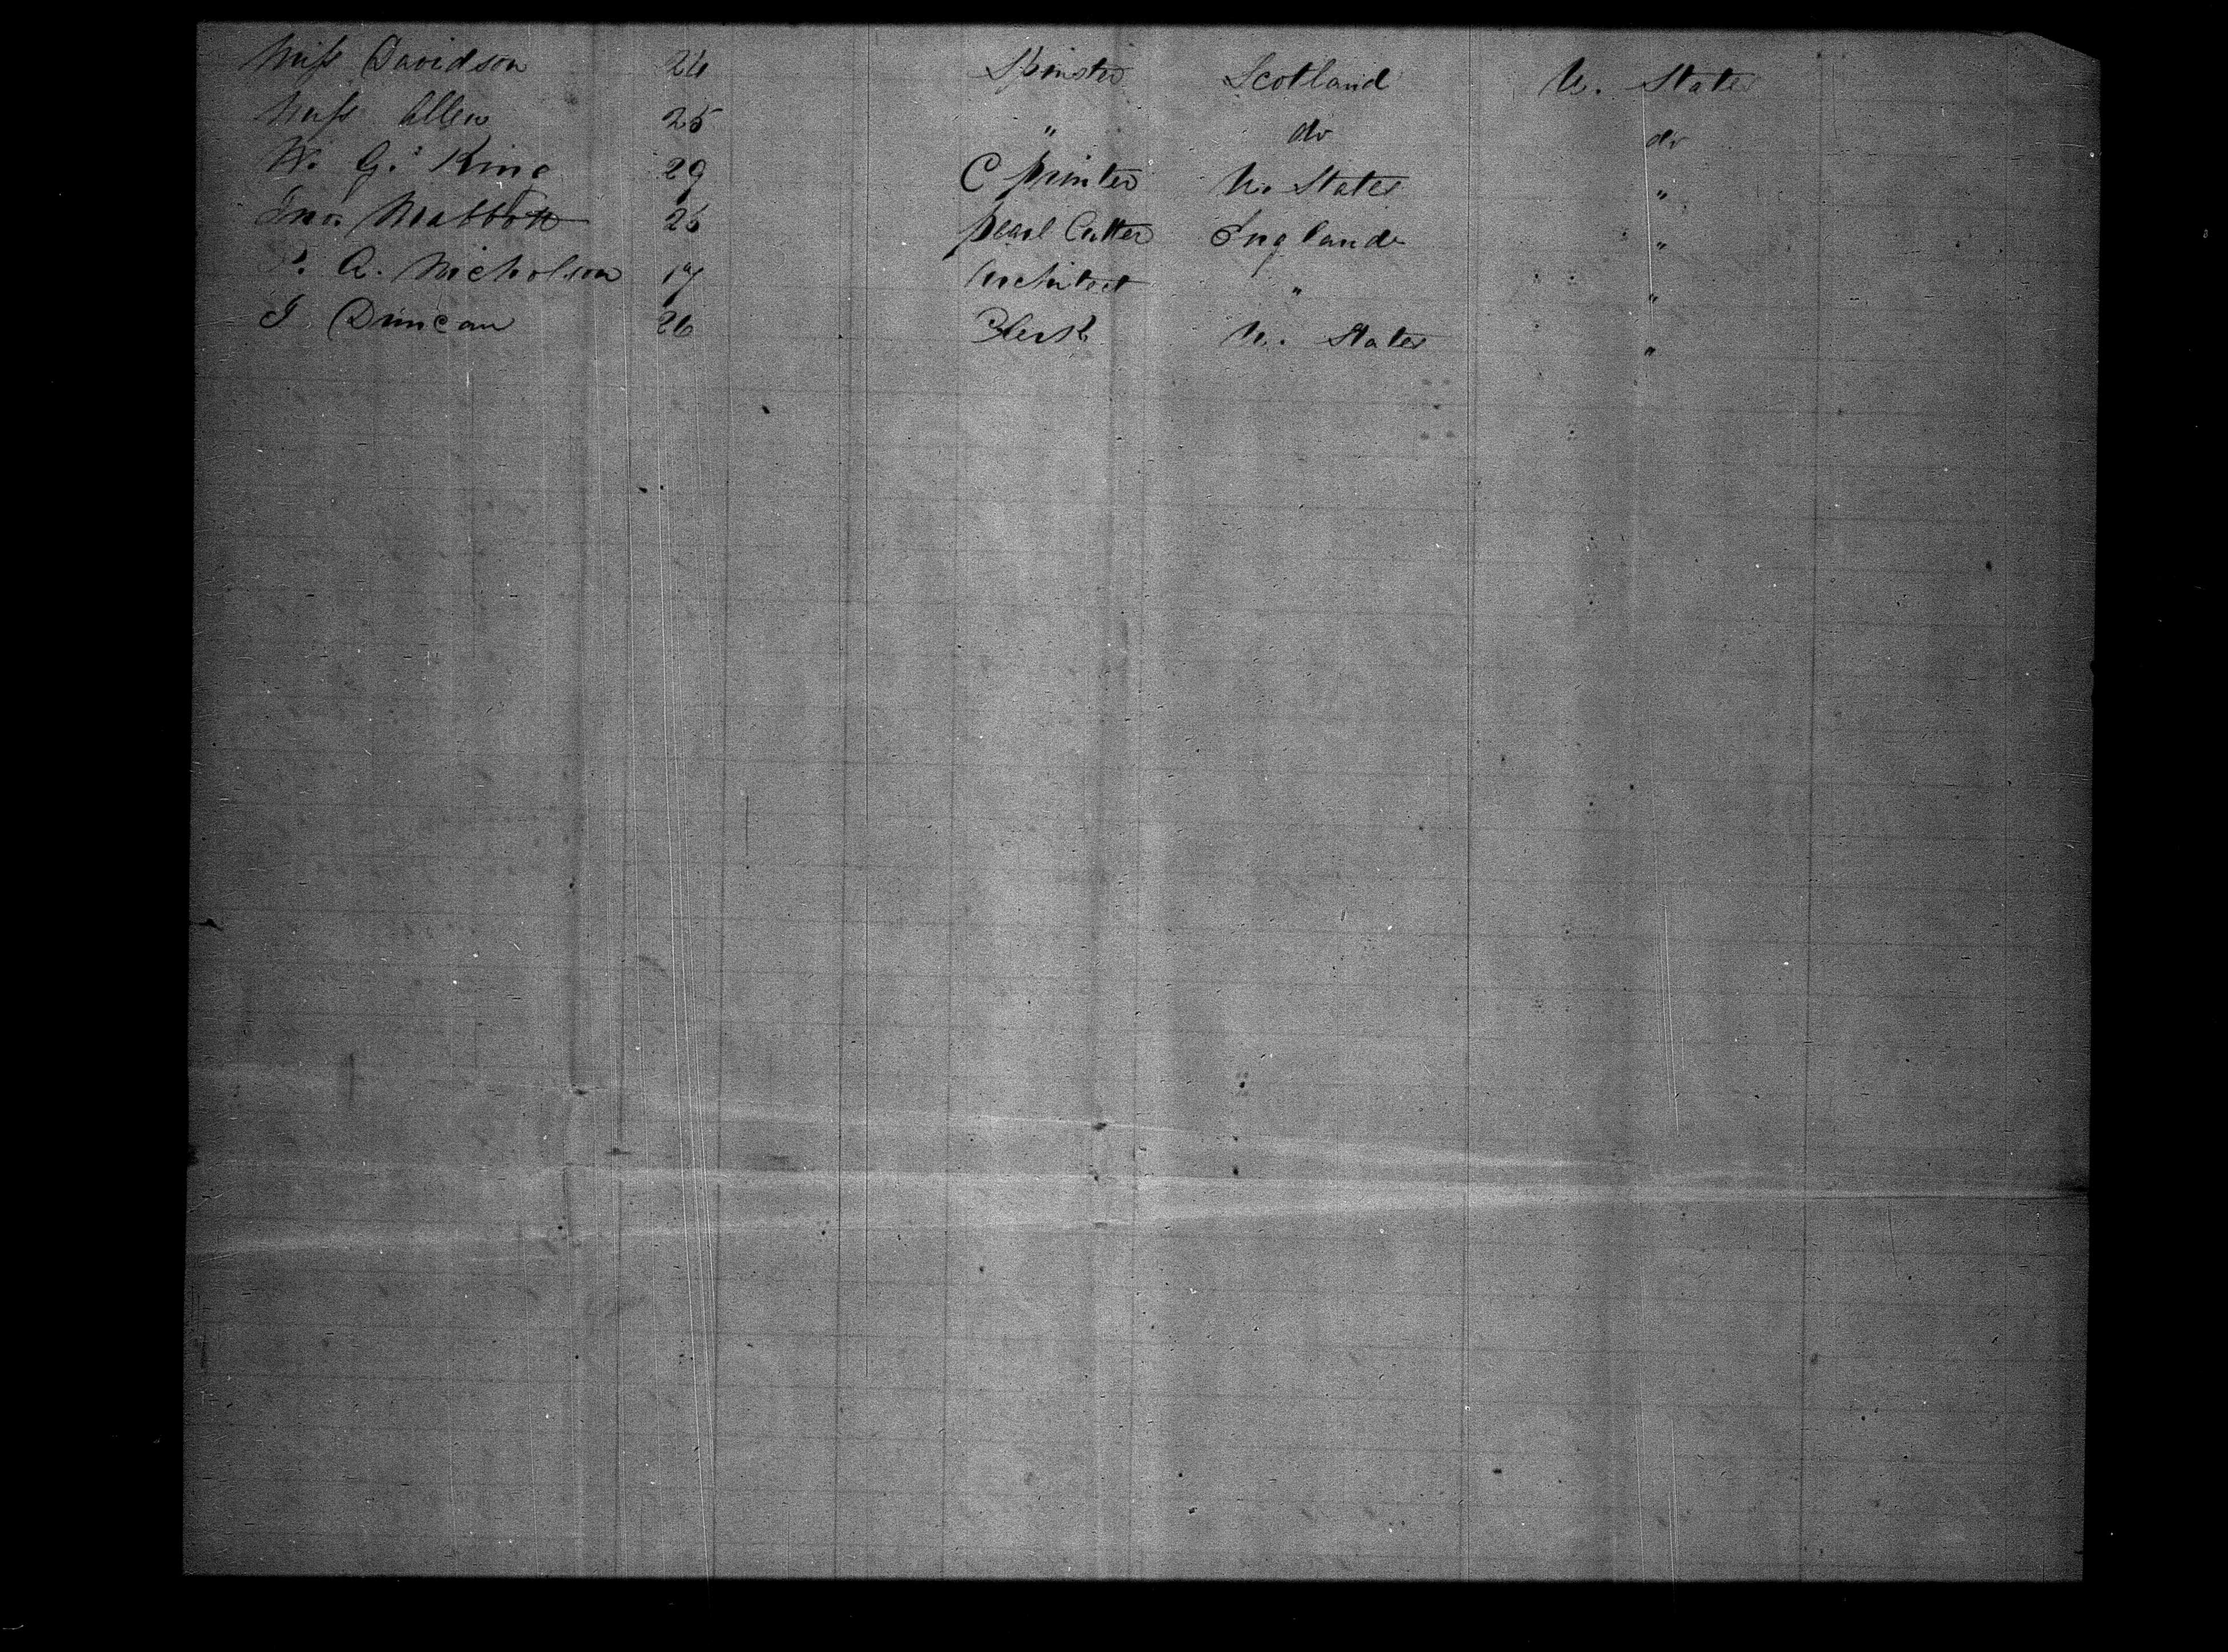 Miss Davidson 24 Spinster Scotland U. States
Miss Allen 25 " do do
W. G. King 29 C printer U. States "
Jno. Mabbott 26 pearl Cutter England "
A. Nicholson 17 Architect " "
J Duncan 26 Clerk U. States "